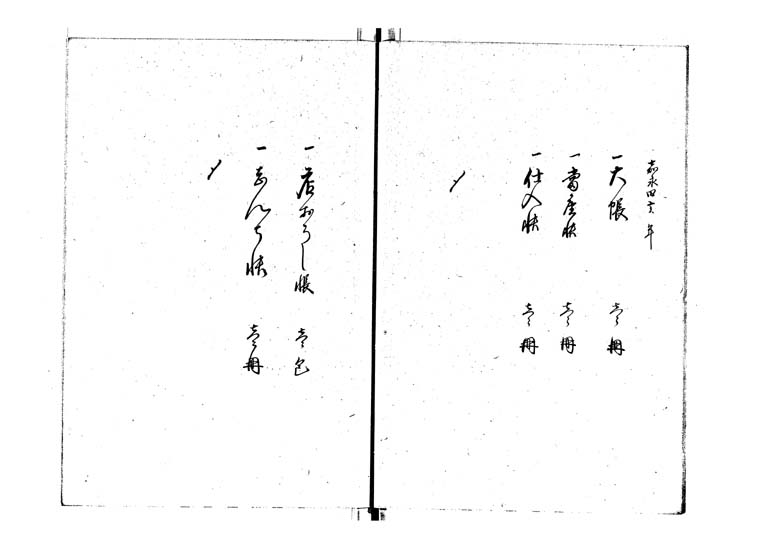 嘉永四亥年
一大帳 壱冊
一當座帳 壱冊
一仕入帳 壱冊
〆
一店おろし帳 壱包
一きんち帳 壱冊
〆